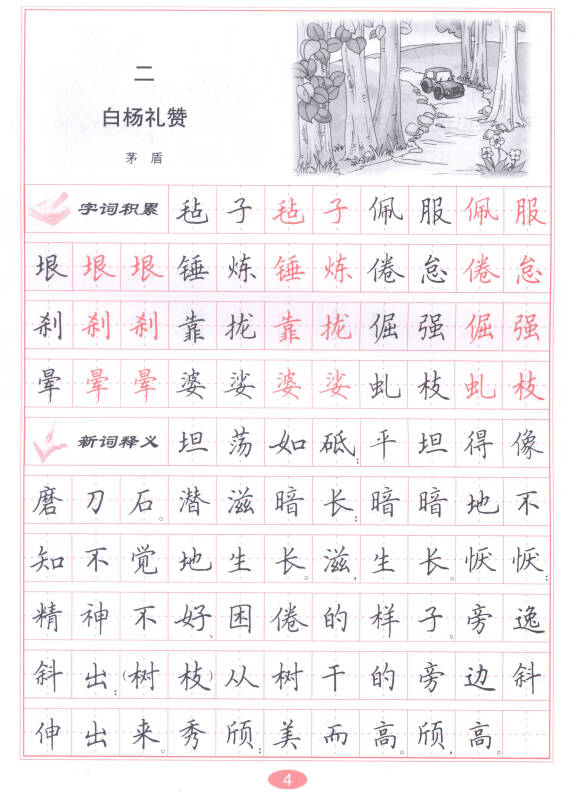 二
白杨礼赞
茅盾
字词积累 毡子毡子佩服佩服
垠垠垠锤炼锤炼倦怠倦怠
刹刹刹靠拢靠拢倔强倔强
晕晕晕婆娑婆娑虬枝虬枝
新词释义 坦荡如砥：平坦得像
磨刀石。潜滋暗长：暗暗地不
知不觉地生长。滋，生长。恹恹：
精神不好、困倦的样子。旁逸
斜出：（树枝）从树干的旁边斜
伸出来。秀颀：美而高。颀，高。
4